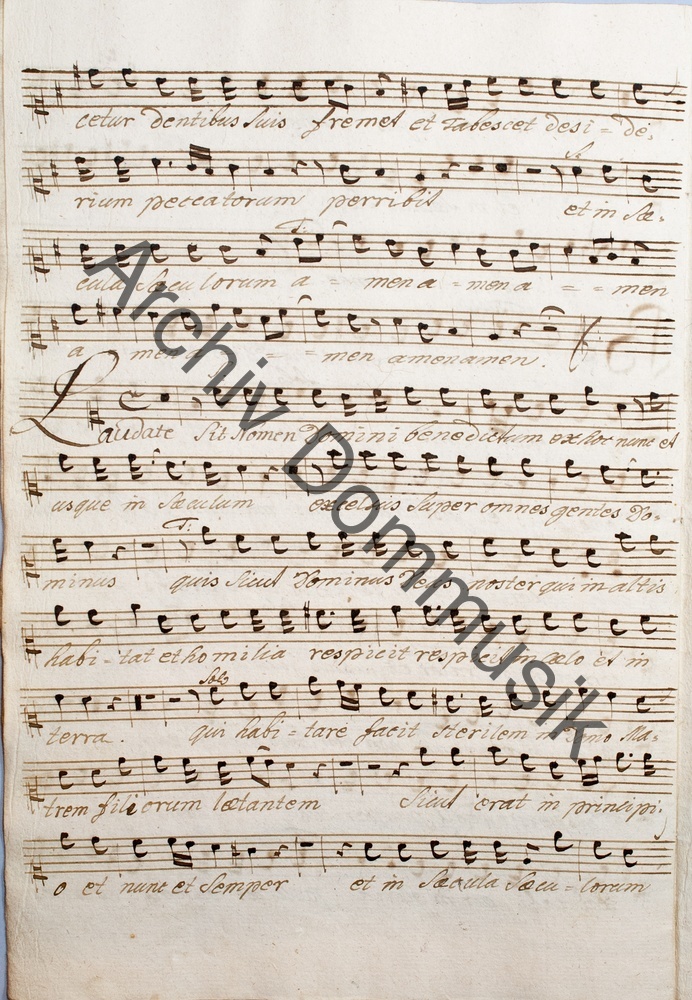 cetur dentibus suis fremet et tabescet desi = de,
S.
rium peccatorum perribit et in Sæ-
T.
cula Sæculorum a = men a = men a = = men
a men a = = men amen amen.
Laudate Sit Nomen Domini benedictum ex hoc nunc et
usque in Sæculum excelsus super omnes gentes Do-
T:
minus quis sicut Dominus Deus noster qui in altis
habi = tat et homilia respicit respicit in cælo et in
Solo
terra. qui habi = tare facit sterilem Ma-
trem filiorum lætantem Sicut erat in principi,
o et nunc et Semper et in Sæcula Sæcu = lorum
Archiv Dommusik